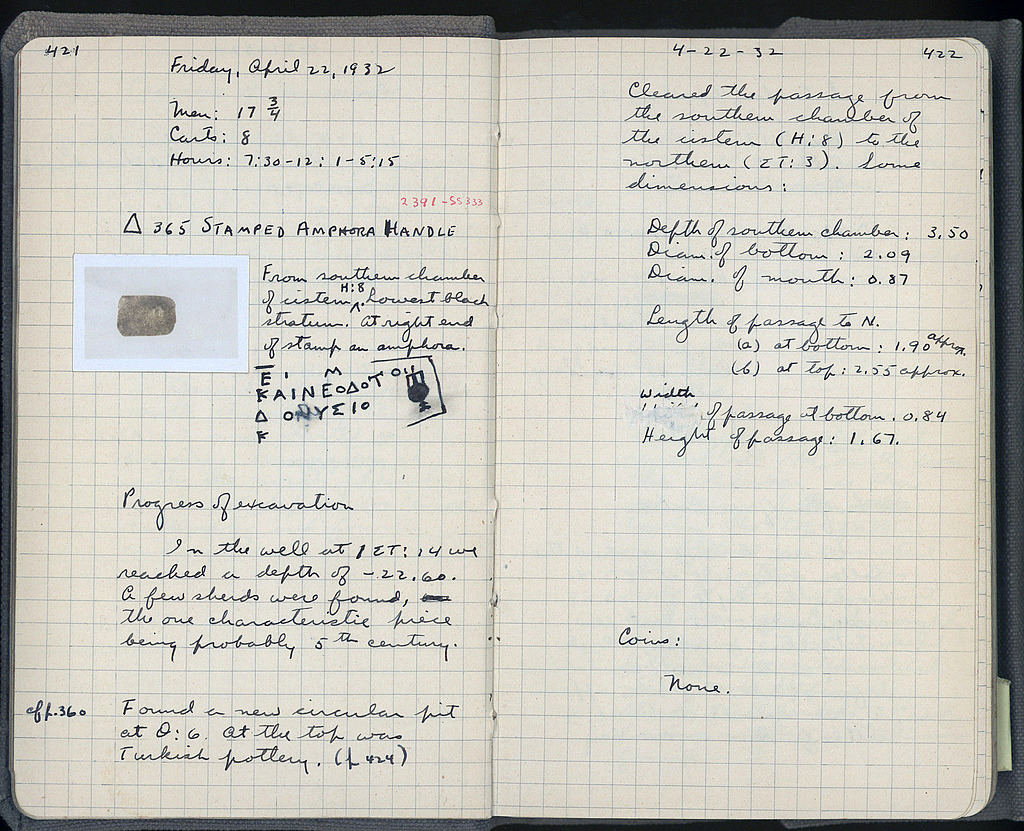 421
Friday, April 22, 1932
Men: 17 3/4
Carts: 8
Hours: 7:30-12: 1-5:15
2391-SS333
Δ 365 STAMPED AMPHORA HANDLE
From southern chamber
of cistern H:8, lowest black
stratum. At right end
of stamp an amphora.
Ε Ι Μ
ΚΑΙΝΕΟΔΟΤΟΥ
Δ ΟΝΥΣΙΟ
Κ
Progress of excavation
In the well at ΙΣΤ: 14 we
reached a depth of -22.60.
A few sherds were found,
the one characteristic piece
being probably 5th century.
cf p.360
Found a new circular pit
at Θ: 6. At the top was
Turkish pottery. (p 424)
4-22-32
422
Cleared the passage from
the southern chamber of
the cistern (H:8) to the
northern (ΣΤ: 3). Some
dimensions:
Depth of southern chamber: 3.50
Diam. of bottom: 2.09
Diam. of mouth: 0.87
Length of passage to N.
(a) at bottom: 1.90 approx.
(b) at top: 2.55 approx.
Width
of passage at bottom. 0.84
Height of passage: 1.67.
Coins:
None.